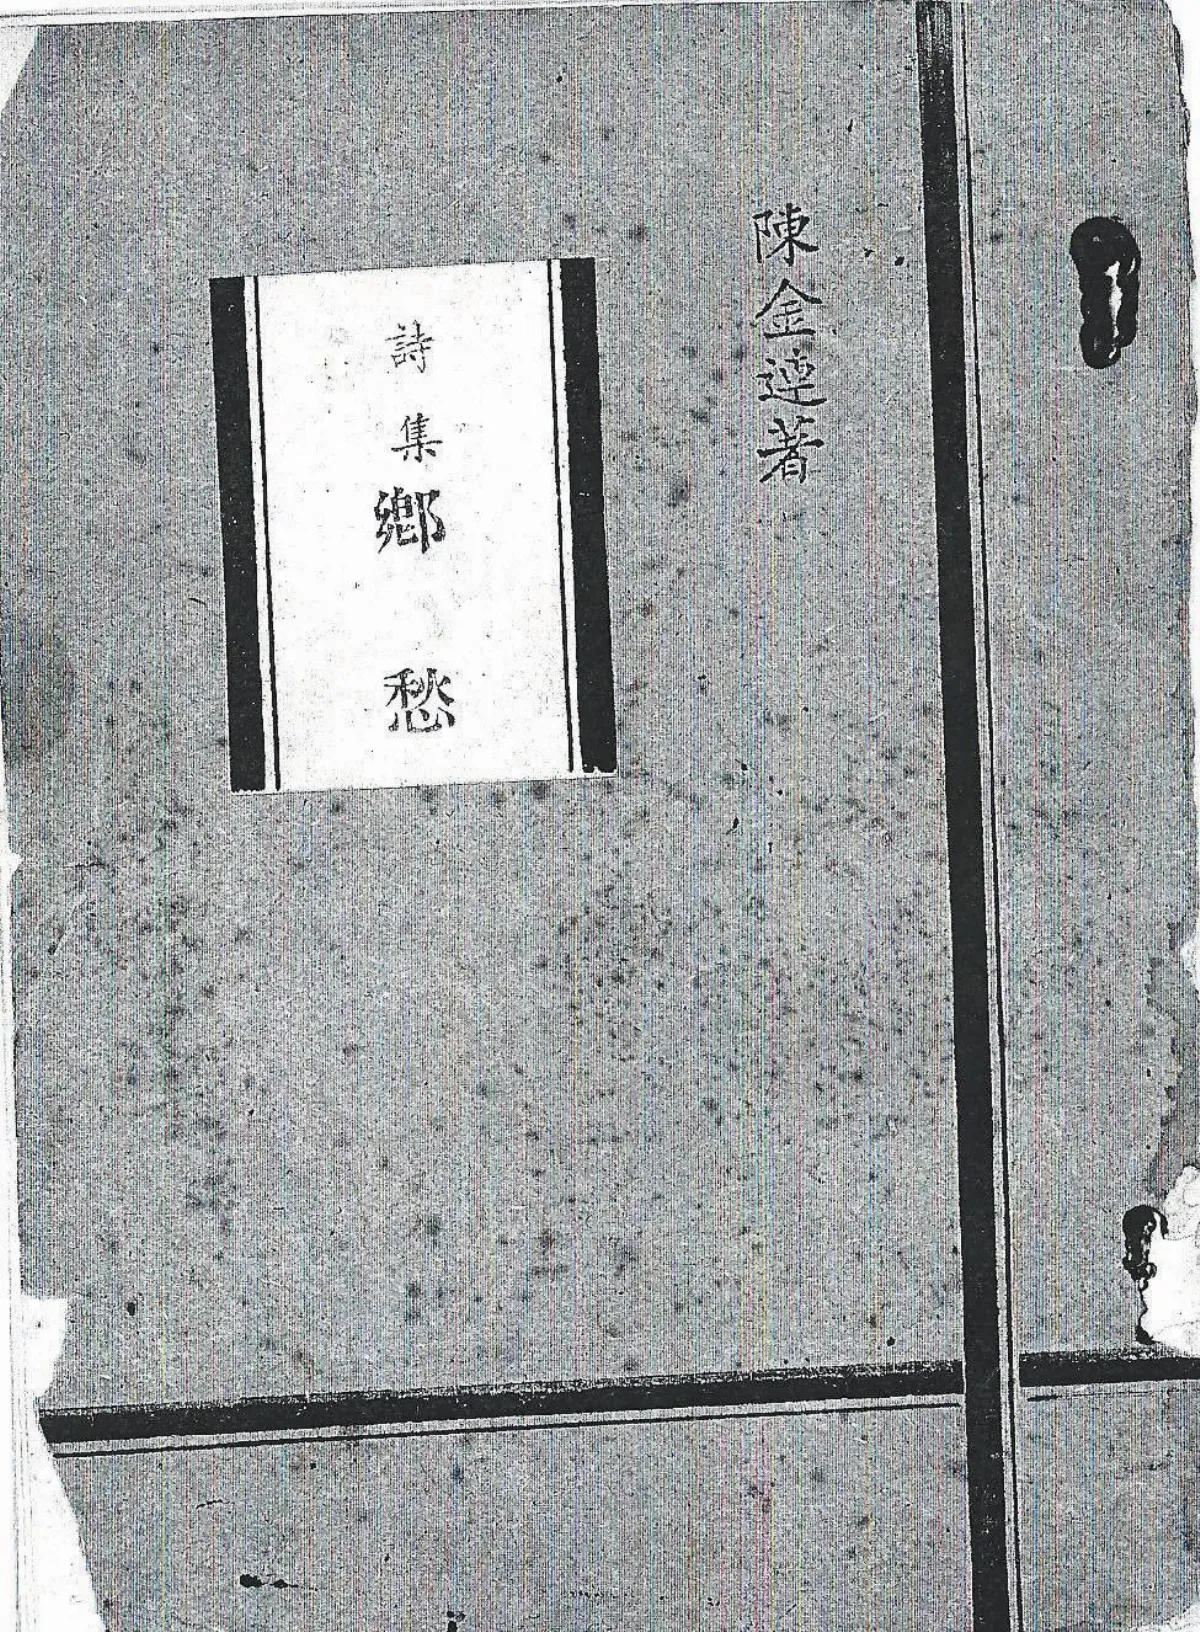 陳金連著
詩集 鄉愁